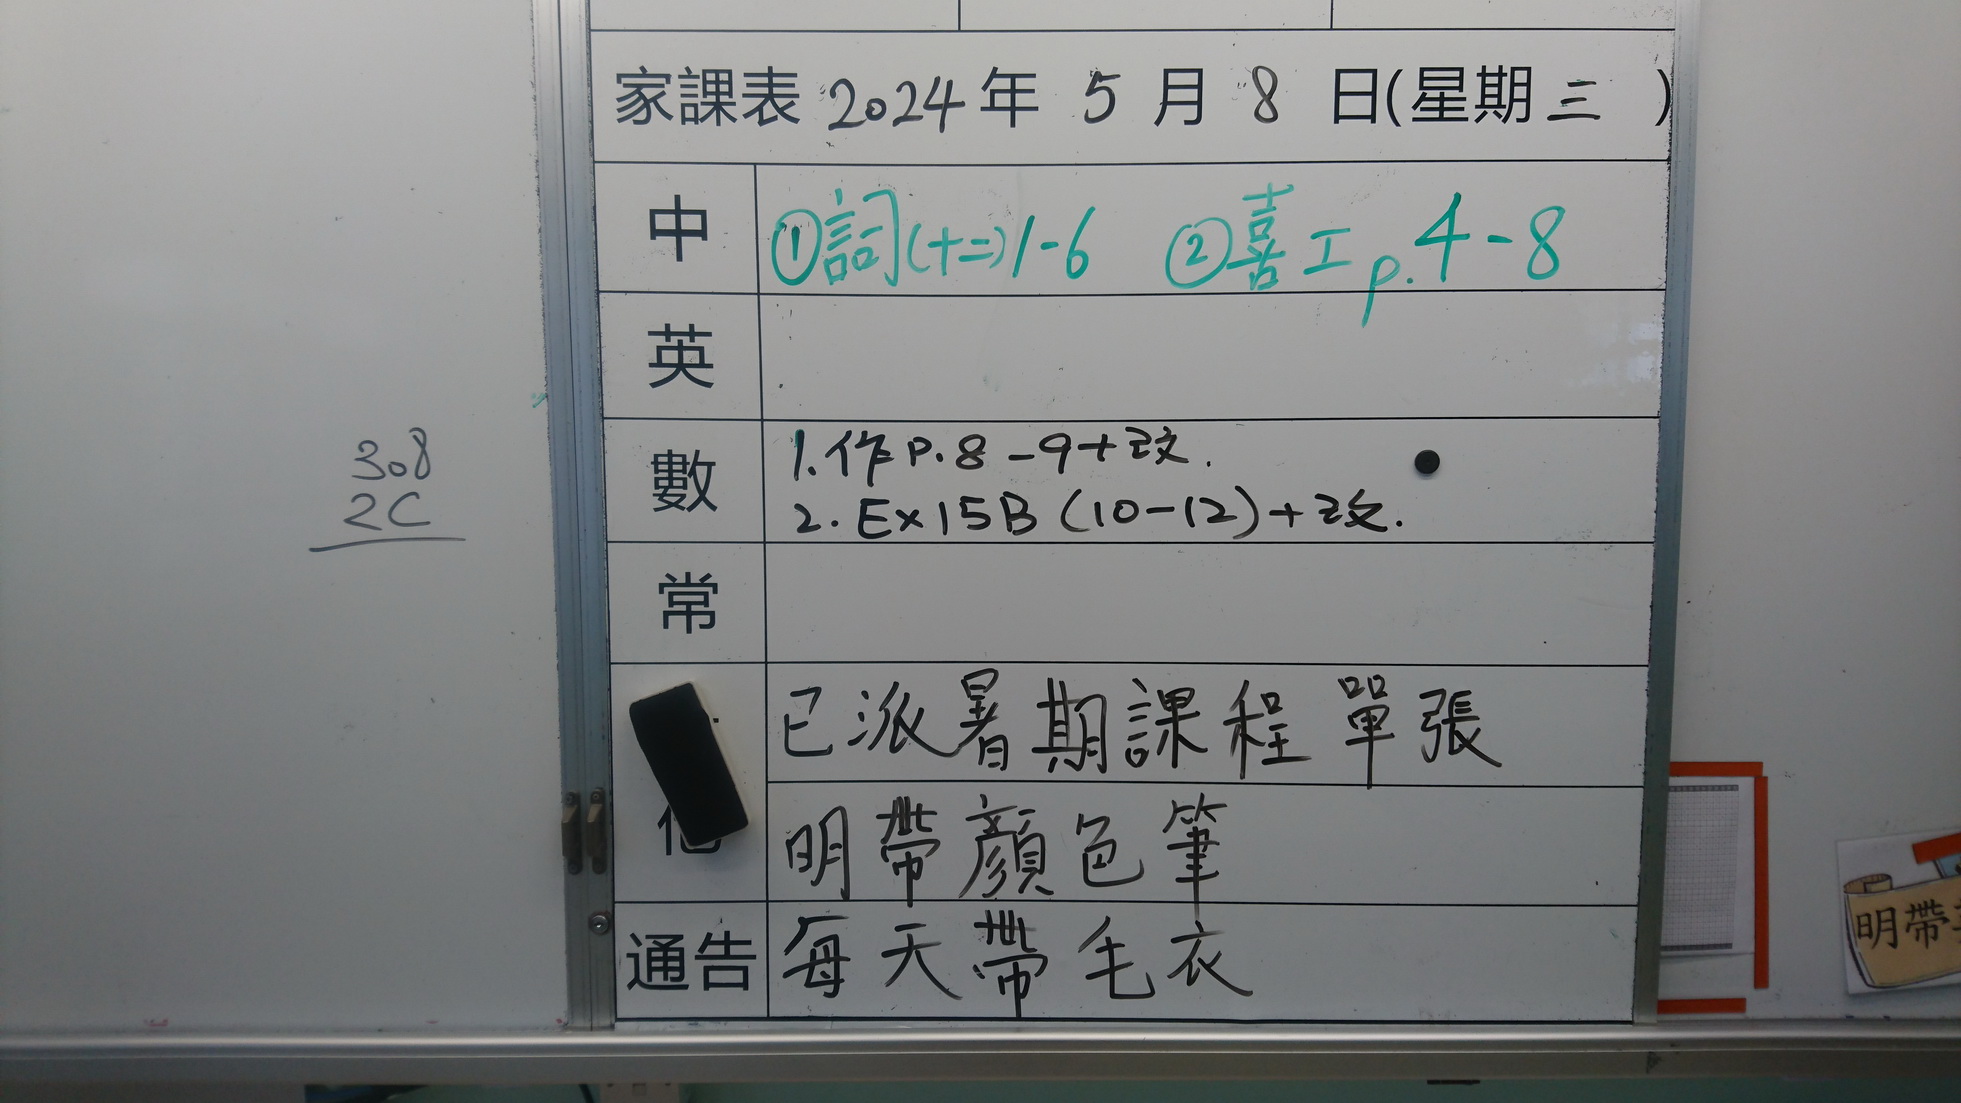 家課表 2024年 5月 8日(星期三)
中 ①詞(十二)1-6 ②喜工p.4-8
英
數 1.作P.8-9+改.
2. Ex15B (10-12)+改.
常
已派暑期課程單張
他 明帶顏色筆
通告 每天帶毛衣
308
2C
明帶